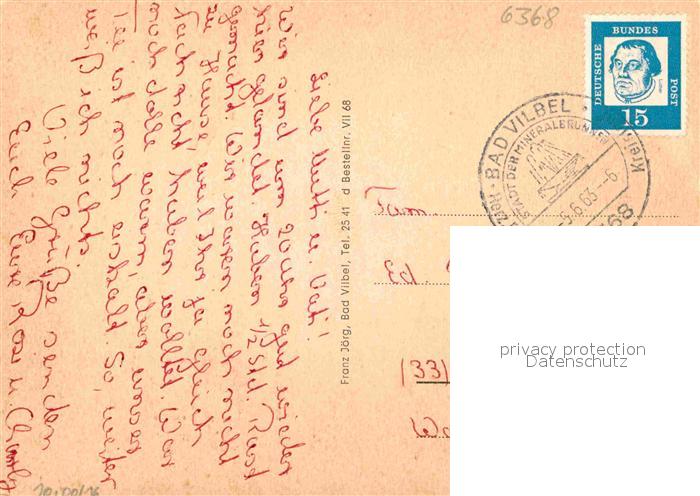 6368
DEUTSCHE BUNDES POST
Luther
15
BAD VILBEL
STADT DER MINERALBRUNNEN
5.6.63.–6
Liebe Mutt u. Vati!
Wir sind um 20 Uhr gut wieder
hier gelandet. Haben 1/2 Std. Rast
gemacht. Wir waren noch nicht
zu Hause, weil Ihr ja gleich
nicht haben wolltet. War
noch dolle warm, aber unser
Tee ist noch eiskalt. So, weiter
weiß ich nichts.
Viele Grüße senden
Euch Eure Rosi u.
Franz Jörg, Bad Vilbel, Tel. 25 41 d Bestellnr. VII 68
Fam.
(33)
privacy protection
Datenschutz